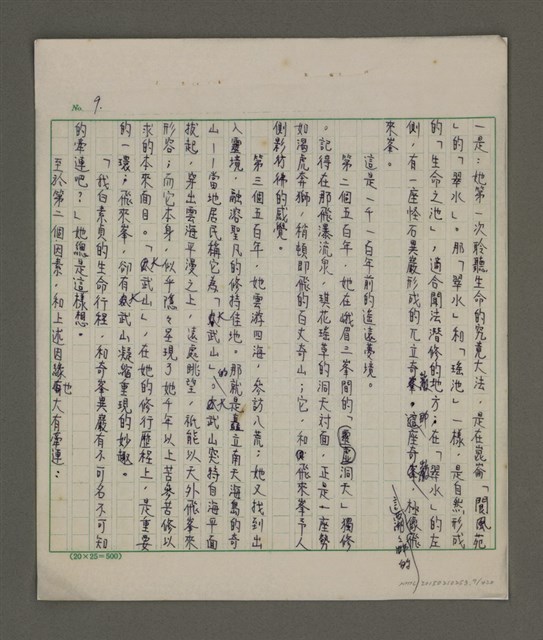 No. 9.
一是：她第一次聆聽生命的究竟大法，是在崑崙「閬風苑
」的「翠水」。那「翠水」和「瑤池」一樣，是自然形成
的「生命之池」，適合聞法潛修的地方；在「翠水」的左
側，有一座怪石異巖形成的兀立奇峯。這座奇峯，極像飛
來峯。
這是一千一百年前的遙遠夢境。
第二個五百年，她在峨眉三峯間的「洞天」獨修
。記得在那飛瀑流泉，琪花瑤草的洞天対面，正是一座勢
如渴虎奔猊，稍頓即飛的百丈奇山；它，和飛來峯予人
側影彷彿的感覺。
第三個五百年，她雲游四海，參訪八荒；她又找到出
入靈境，融溶聖凡的修持佳地。那就是矗立南天海島的奇
山——當地居民稱它為「大武山」。大武山突特自海平面
拔起，穿出雲海平漫之上，遠處眺望，祇能以天外飛峯來
形容；而它本身，似乎隱隱呈現了她千年以上苦參苦修以
求的本來面目。「大武山」，在她的修行歷程上，是重要
的一環；飛來峯，卻有大武山凝縮重現的妙趣。
「我白素貞的生命行程，和奇峯異巖有不可名不可知
的牽連吧？」她總是這樣想。
至於第二個因素，和上述因緣也大有牽連：
(20×25=500)